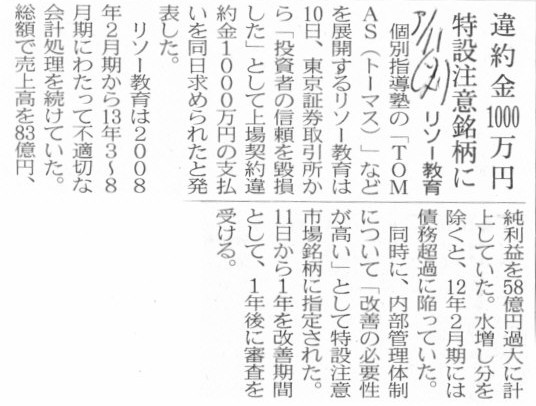 違約金1000万円
特設注意銘柄に
リソー教育
個別指導塾の「TOM
AS(トーマス)」など
を展開するリソー教育は
10日、東京証券取引所か
ら「投資者の信頼を毀損
した」として上場契約違
約金1000万円の支払
いを同日求められたと発
表した。
リソー教育は2008
年2月期から13年3〜8
月期にわたって不適切な
会計処理を続けていた。
総額で売上高を83億円、
純利益を58億円過大に計
上していた。水増し分を
除くと、12年2月期には
債務超過に陥っていた。
同時に、内部管理体制
について「改善の必要性
が高い」として特設注意
市場銘柄に指定された。
11日から1年を改善期間
として、1年後に審査を
受ける。